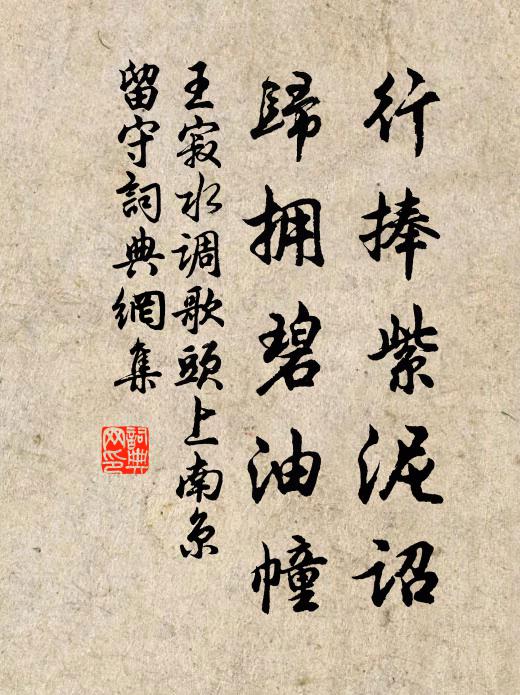 行捧紫泥詔
歸拥碧油幢
王寂水调歌頭上南京
留守詞典網集
詞典网印